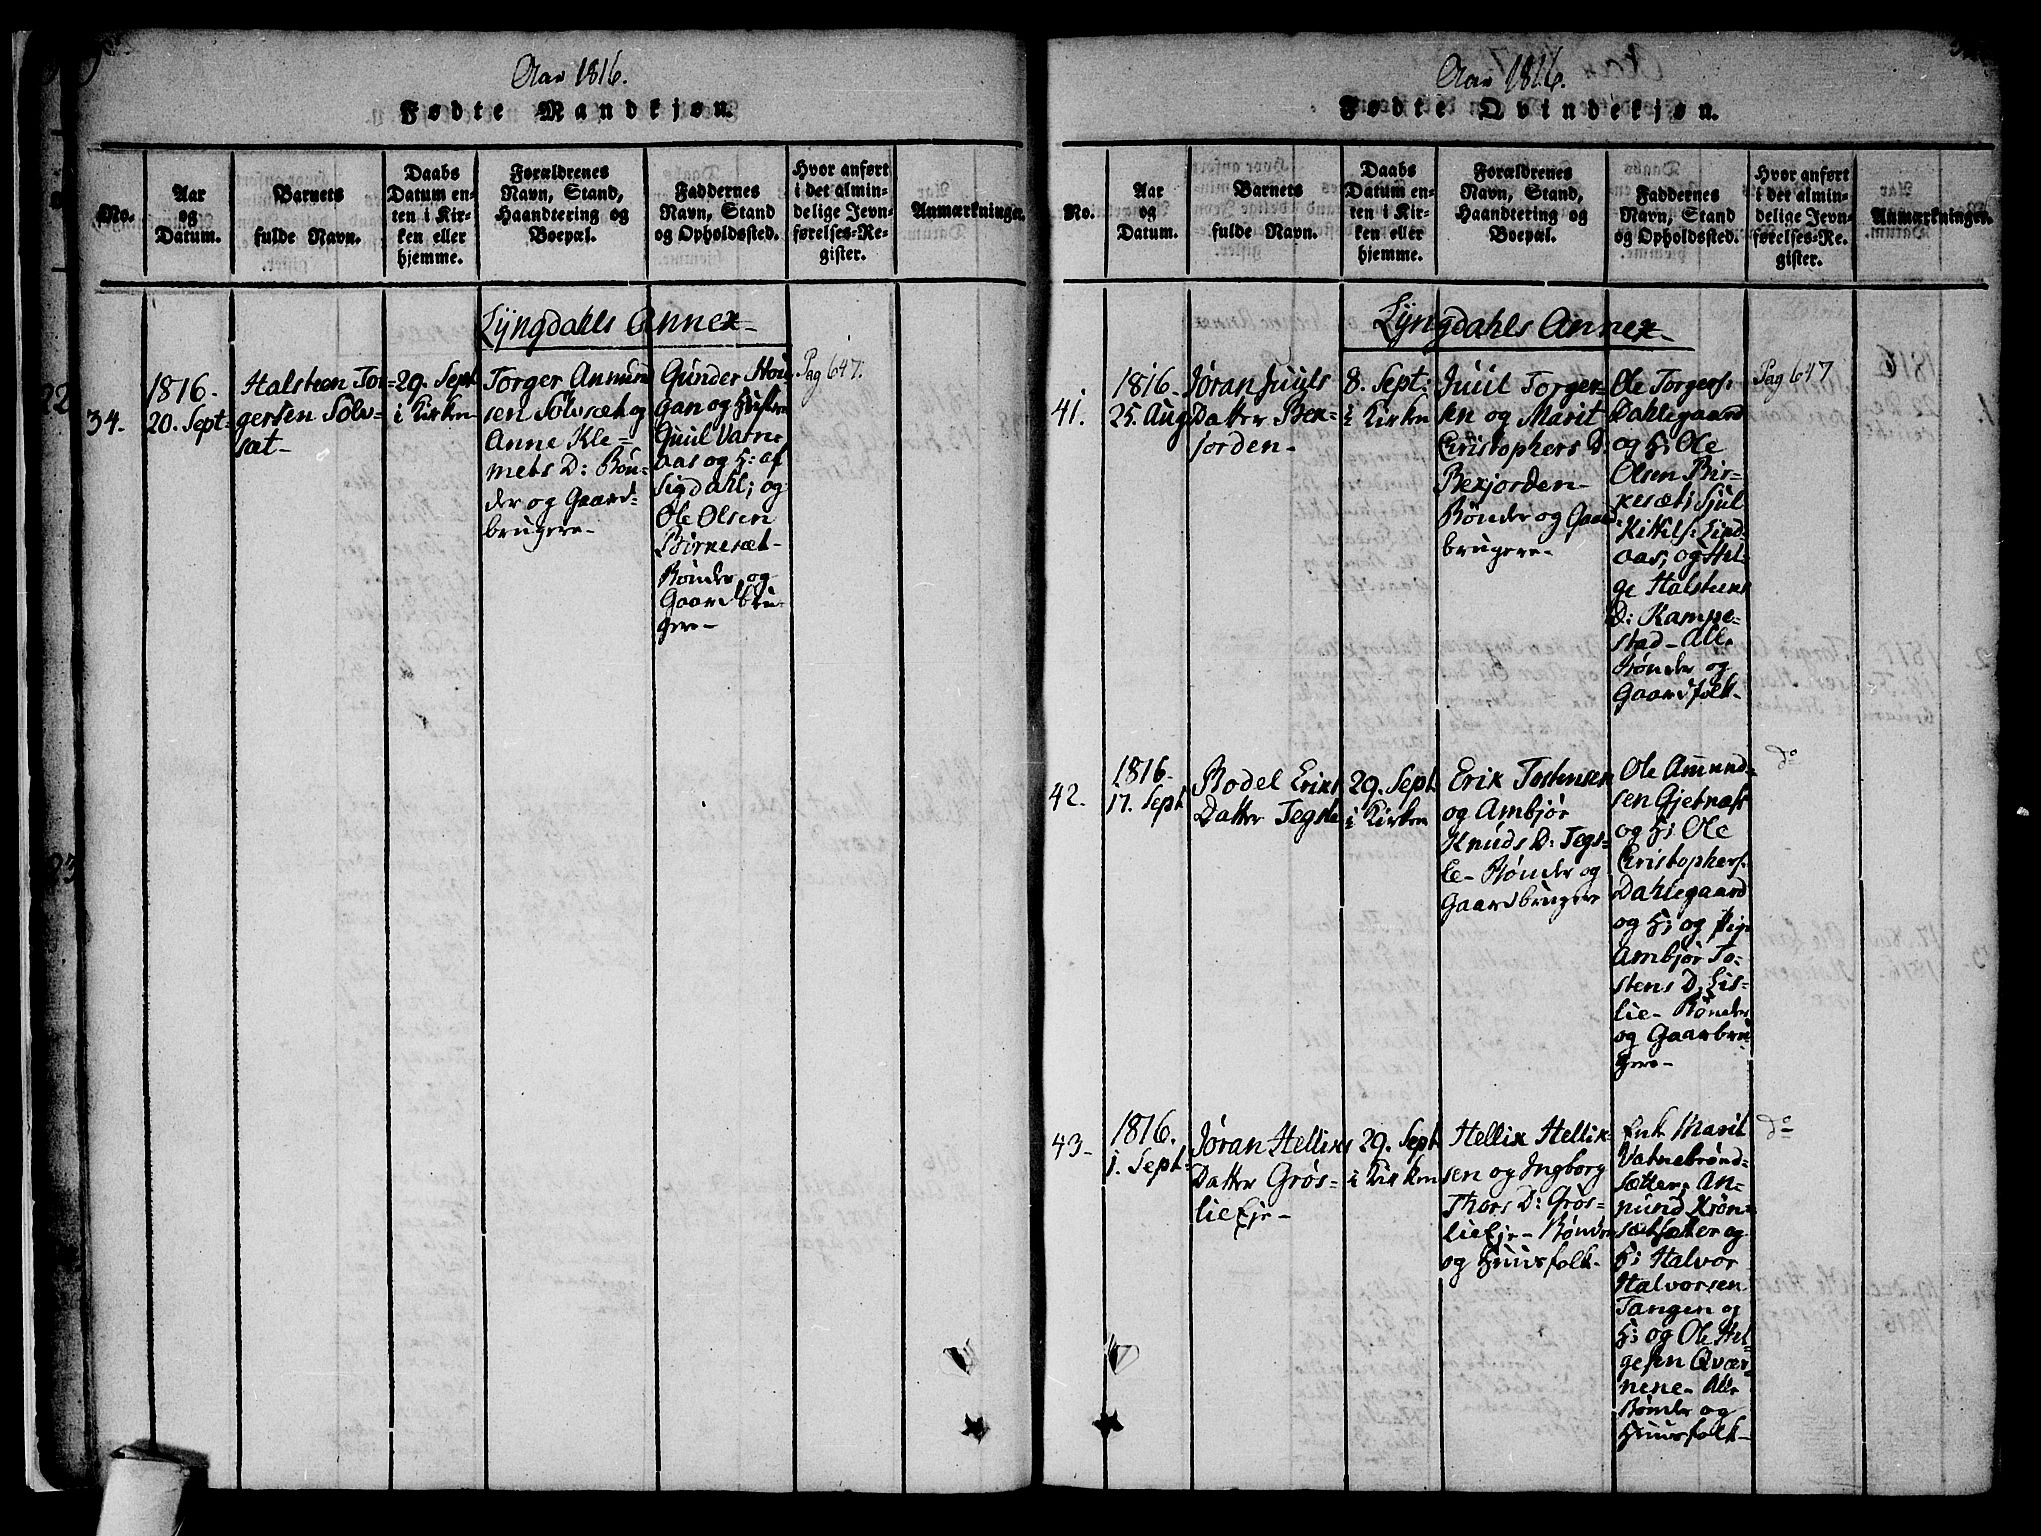 Aar 1816.
Fødte Mandkjøn.
No.
Aar
og
Datum.
Barnets
fulde Navn.
Daabs
Datum en-
ten i Kir-
ken eller
hjemme.
Forældrenes
Navn, Stand,
Haandtering og
Boepæl.
Faddernes
Navn, Stand
og Opholdssted.
Hvor anført
i det almin-
delige Jevn-
førelses-Re-
gister.
Anmærkninger.
Lÿngdahls Annex
34.
1816.
20. Sept
Halsteen Tor-
gersen Sölv-
sæt
29. Sept
i Kirken
Torger Anmun
sen Sölvsæt og
Anne Kle-
mets D: Bøn-
der og Gaard-
brugere
Gunder Hou-
gan og Hustru
Guul Vatne
aas og H: af
Sigdahl; og
Ole Olsen
Birkesæt
Bønder og
Gaardbru-
gere
Pag 647.
Aar 1816.
Fødte Qvindekjøn.
No.
Aar
og
Datum.
Barnets
fulde Navn.
Daabs
Datum en-
ten i Kir-
ken eller
hjemme.
Forældrenes
Navn, Stand,
Haandtering og
Boepæl.
Faddernes
Navn, Stand
og Opholdssted.
Hvor anført
i det almin-
delige Jevn-
førelses-Re-
gister.
Anmærkningen.
Lÿngdahls Annex
41.
1816.
25. Aug
Jøran Juuls
Datter Bex-
jorden
8. Sept:
i Kirken
Juul Torger-
sen og Marit
Christophers D:
Bexjorden
Bønder og Gaard
brugere
Ole Torgers:
Dahlegaard
og H: Ole
Olsen Bir-
kesæt; Sjul
Kittels: Lind-
aas; og Hel-
ge Halsteens
D: Kampe-
stad Alle
Bønder og
Gaardfolk
Pag 647
42.
1816.
17. Sept
Bodel Eriks
Datter Tegsle
29. Sept
i Kirken
Erik Tostensen
og Ambjør
Knuds D: Tegs-
le Bønder og
Gaardbrugere
Ole Amund-
sen Gjetnæs
og H: Ole
Christophers:
Dahlegaard
og H: og Pig:
Ambjør To-
stens D: Lis-
lie Bønder
og Gaarbru
gere
do
43
1816.
1. Sept
Jøran Helliks
Datter Grøs-
lie Eje
29. Sept
i Kirken
Hellik Hellik-
sen og Ingborg
Thors D: Grøs-
lieEje Bønder
og Huusfolk
Enk Marit
Vatnebrønd-
sætter; An-
mund Krøn-
sætsæter og
H: Halvor
Halvorsen
Tangen og
H: og Ole Hel-
gesen Qvær-
nene Alle
Bønder og
Huusfolk
do